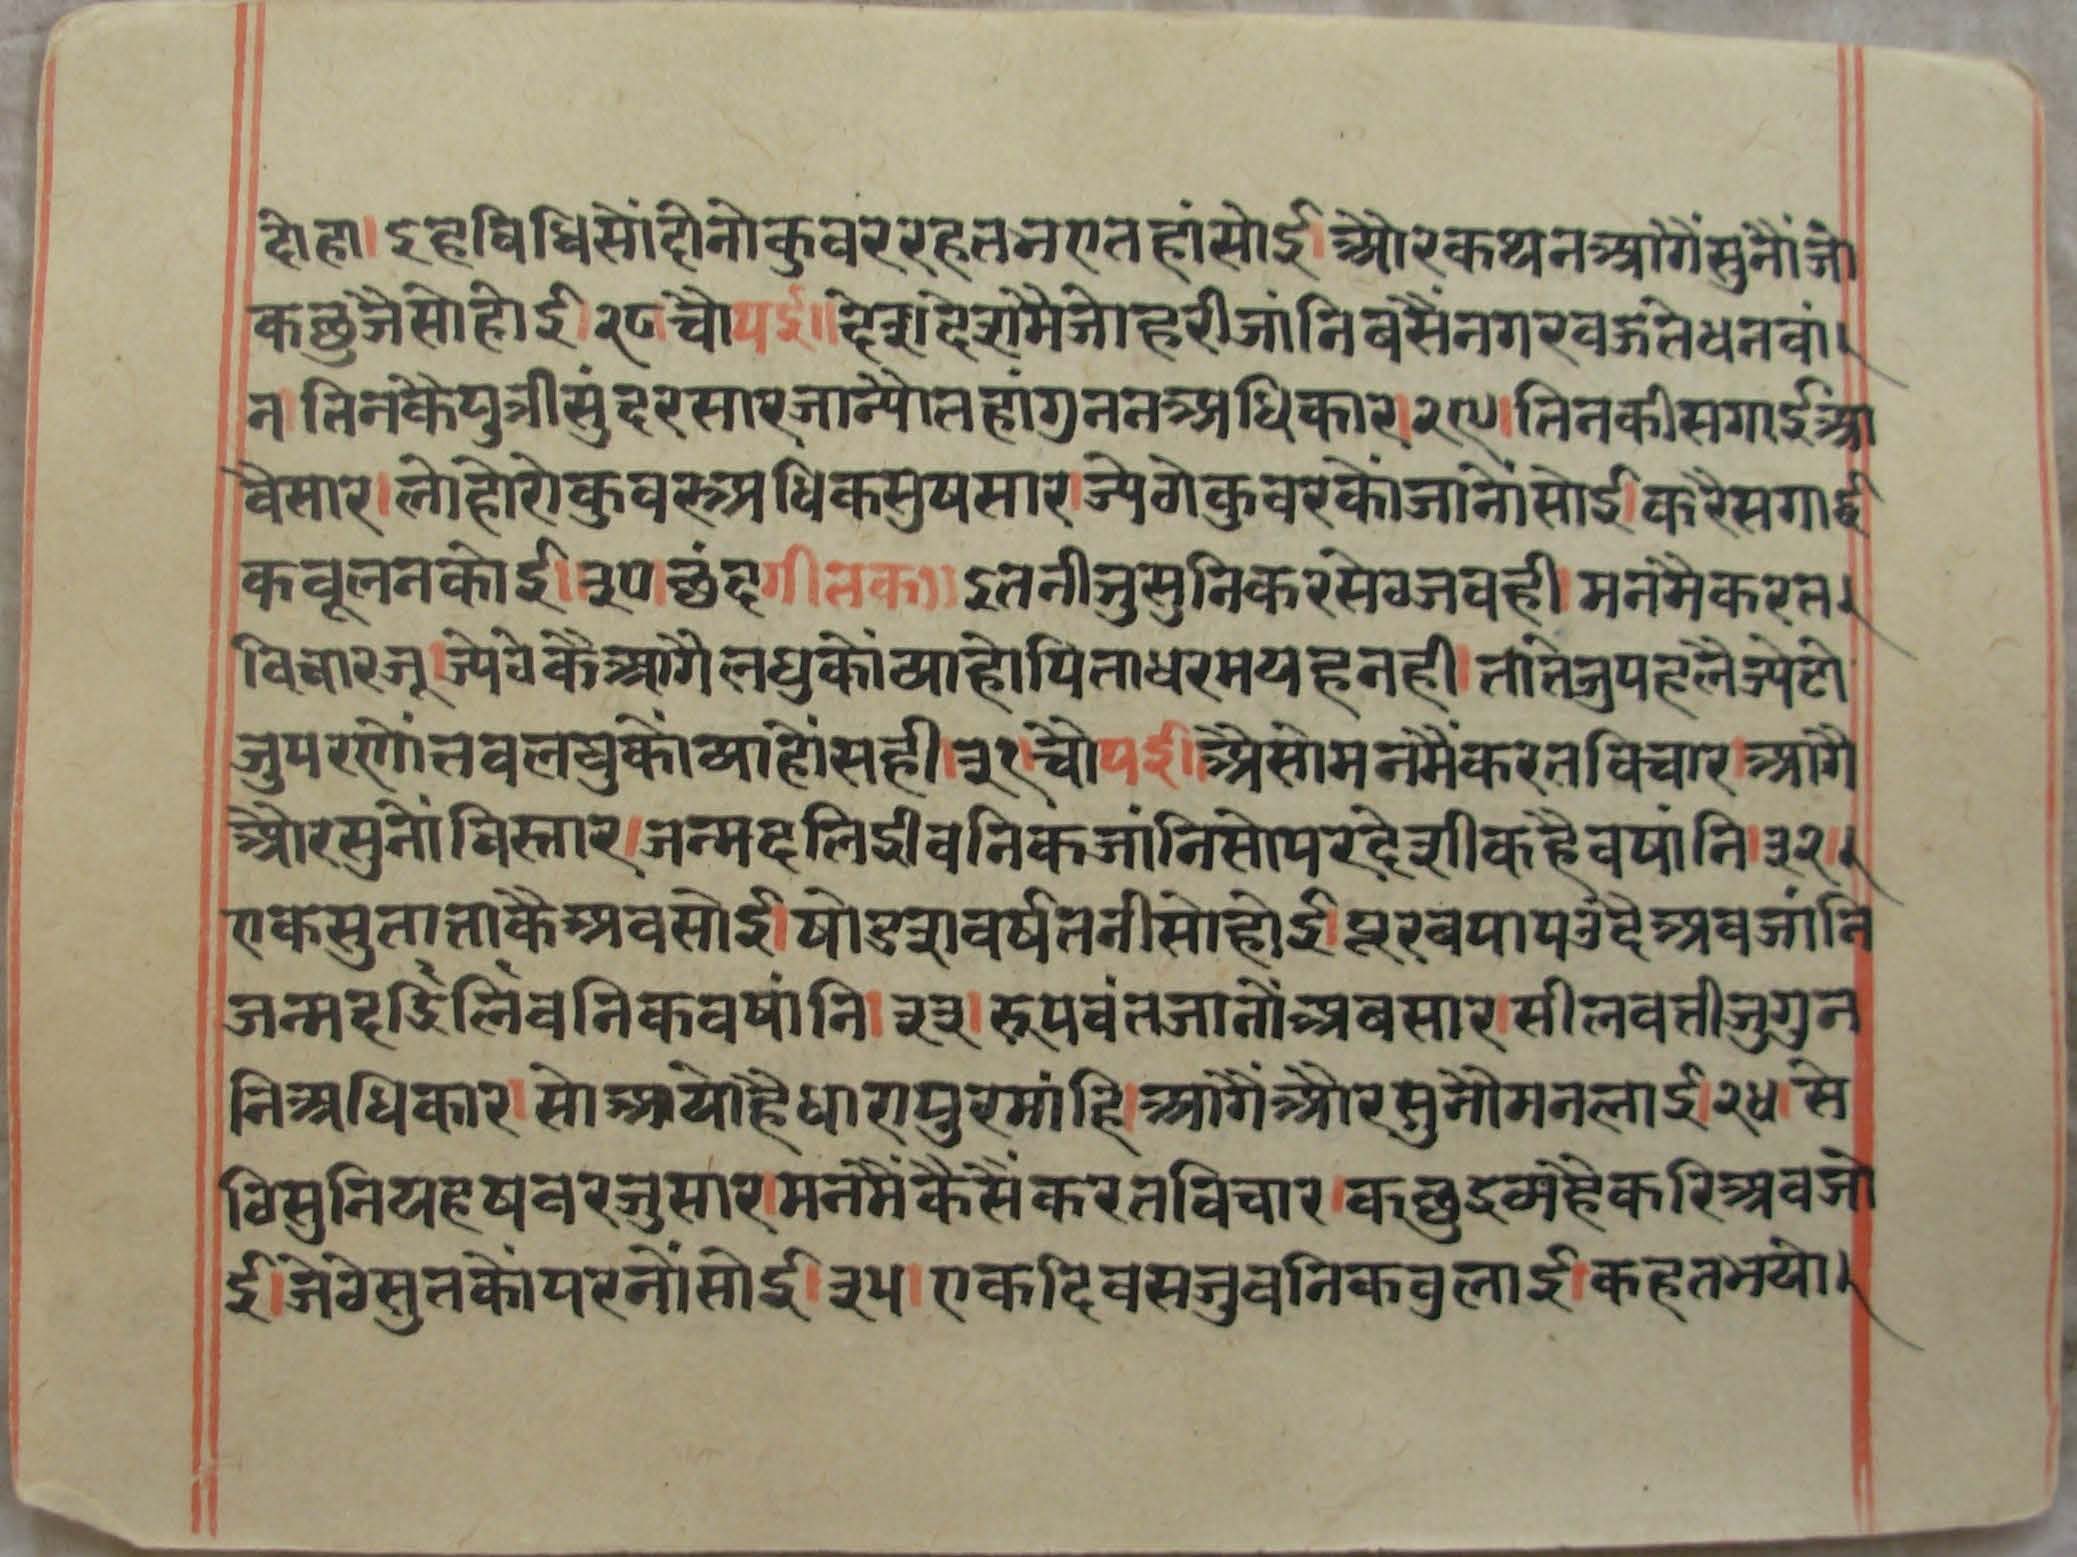 दोहा। इह विधि सों दोनो कुवर रहत न ए तहां सोई। और कथन आगैं सुनौं जो
कछु जैसो होई। २८। चौपई॥ देश देश मै जो हरी जांनि वसैं नगर वजते धनवां
न। तिनकै पुत्री सुंदर सार जान्यौ तहां गुनन अधिकार। २९। तिनकी सगाई आ
वै सार। लोहोरो कुवर अधिक सुष सार। ज्येठो कुवर कों जानों सोई। करै सगाई
कवूल न कोई। ३०। छंद गीतका॥ इतनी जु सुनि कर सेठ जवही। मन मै करत
विचार जू। ज्येठे कै आगै लघु कों व्याहो पिता धरम यह नही। तातें जु पहलै ज्येटो
जु परणों तव लघु कों व्याहों सही। ३१। चौपई॥ अैसो मन मैं करत विचार। आगै
और सुनों विस्तार। जन्मदलिद्री वनिक जांनि सो परदेशी कहै वषांनि। ३२।
एक सुता ताकै अव सोई। षोडश वर्ष तनी सो होई। पूरव पाप उदै अव जांनि
जन्म दलिद्रि वनिक वषांनि। ३३। रूपवंत जानों अव सार। सीलवती जु गुन
नि अधिकार। सो आयो है धारापुर मांहि। आगैं और सुनौ मन लाई। ३४। से
ठि सुनि यह षवर जु सार। मन मैं कैसैं करत विचार। कछु द्रव्य है करि अव जो
ई। जेठे सुत कों परनों सोई। ३५। एक दिवस जु वनिक वुलाई। कहत भयो